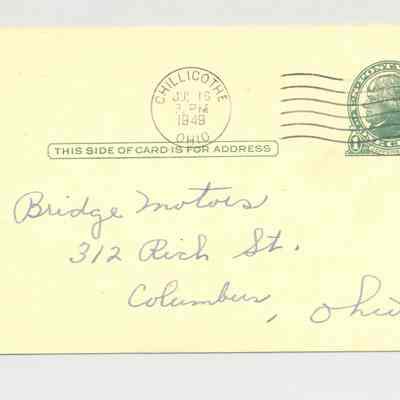 CHILLICOTHE
JUL 16
PM
1949
OHIO
THIS SIDE OF CARD IS FOR ADDRESS
Bridge Motors
312 Rich St.
Columbus, Ohio